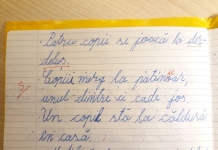 Patru copii se joacă la der-
deluș.
Copiii merg la patinoar,
unul dintre ei cade jos.
Un copil sta la căldură
în casă.